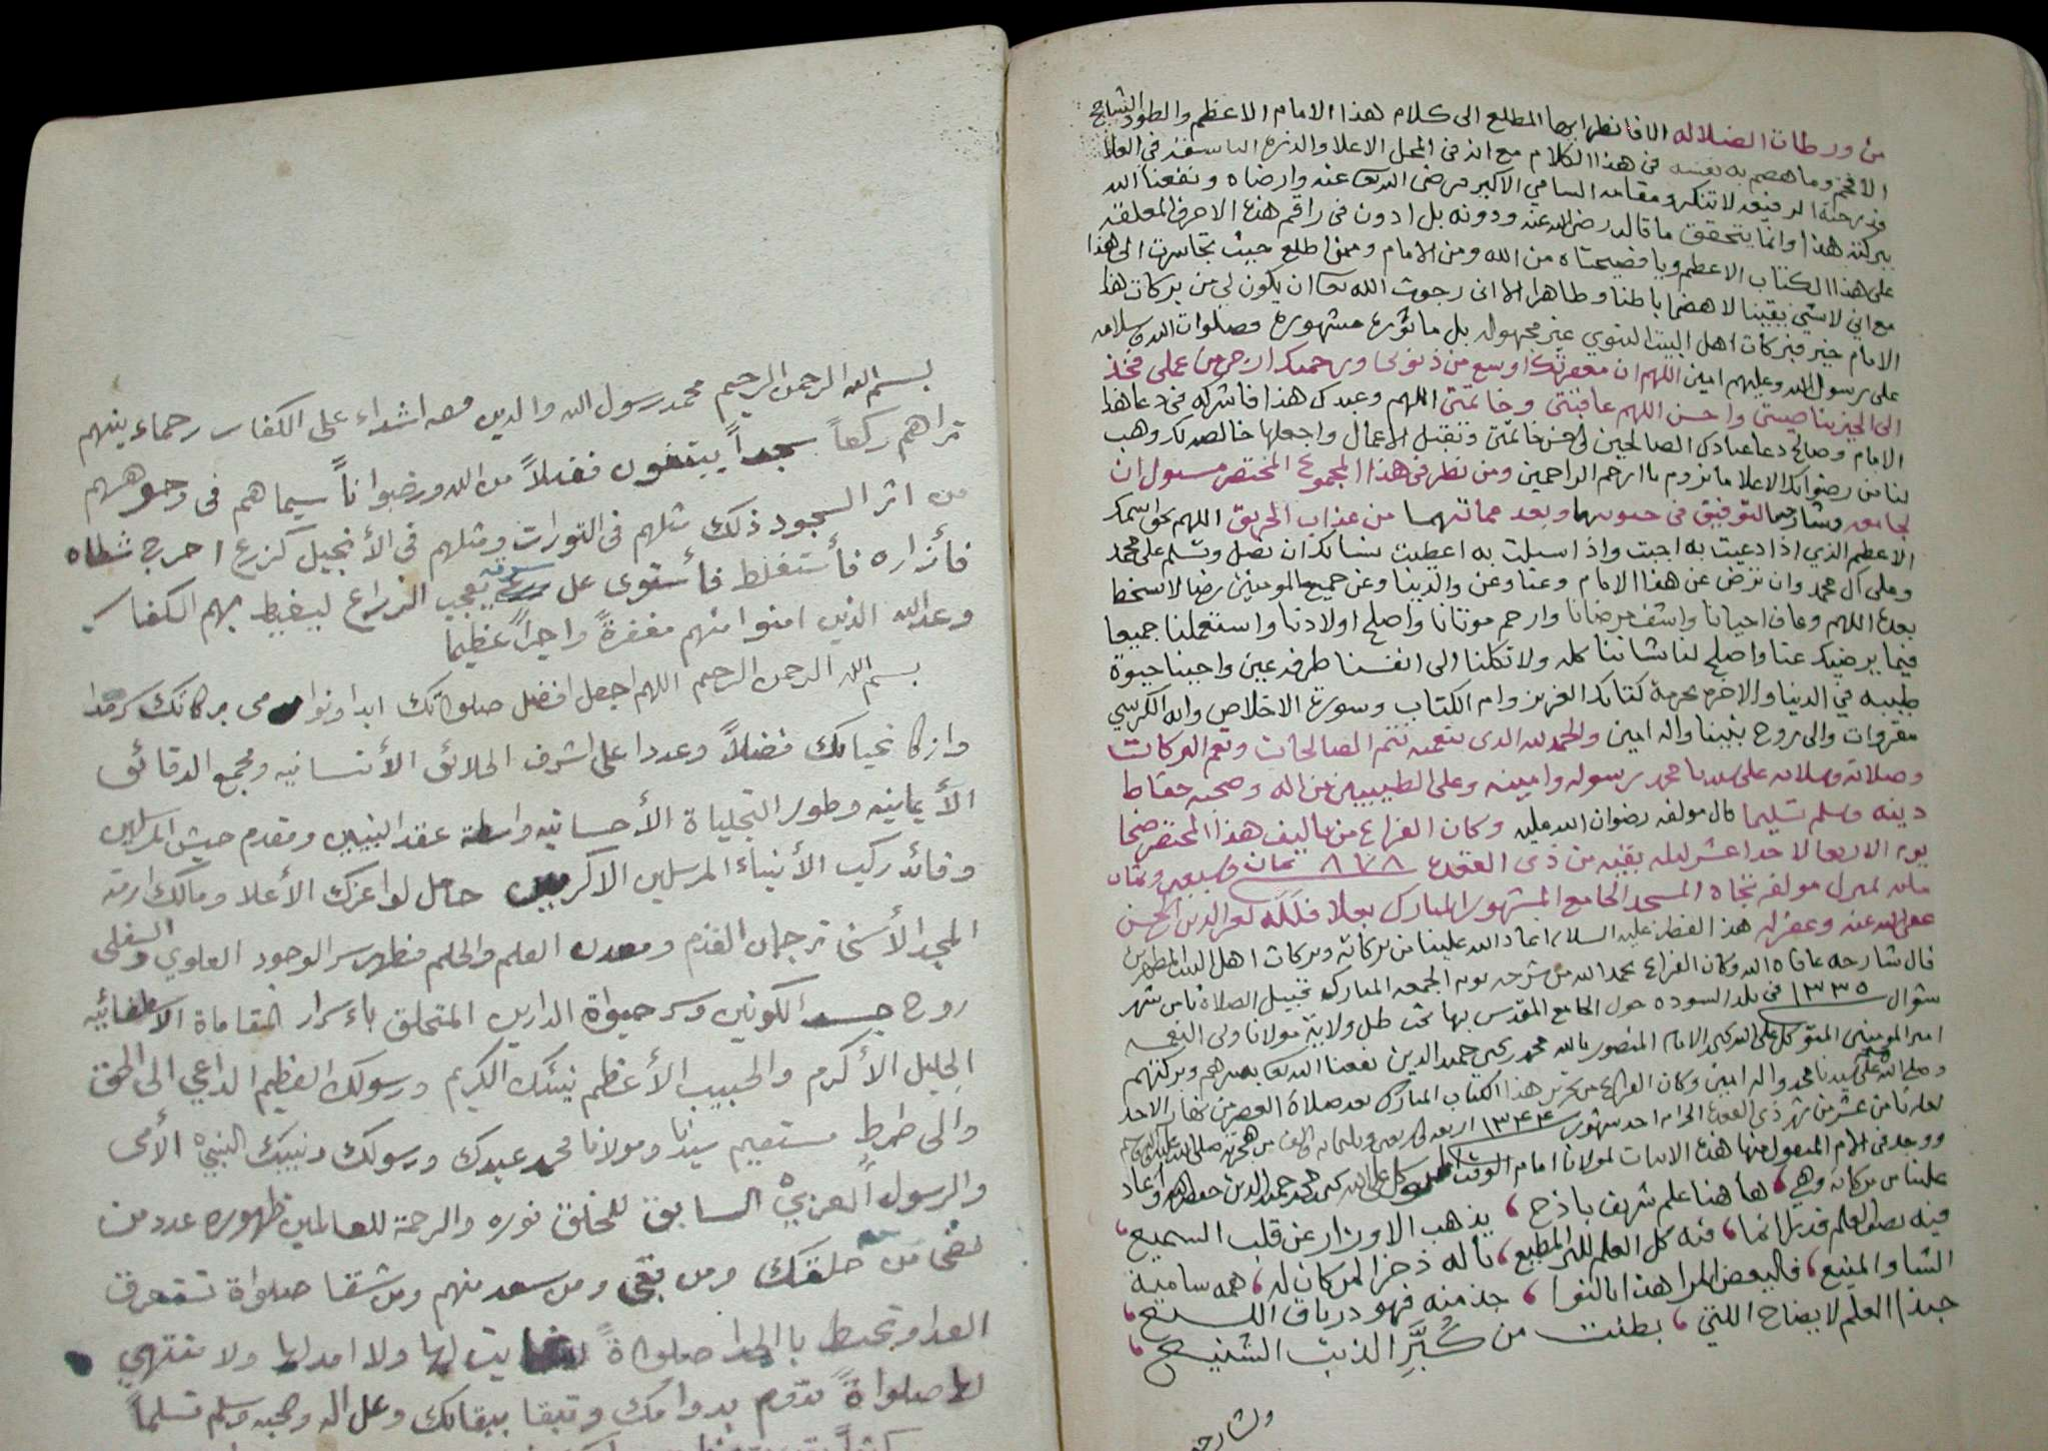 من ورطات الضلاله الا فانظر ايها المطلع الى كلام هذا الامام الاعظم والطود الشامخ
الافخم وما هضم به نفسه في هذا الكلام مع انه في المحل الاعلا والذروة الباسقه في العلا
ودرجته الرفيعه لا تنكر ومقامه السامي الاكبر رضي الله عنه وارضاه ونفعنا الله
ببركته هذا وانما يتحقق ما قاله رضي الله عنه ودونه بل ادون في راقم هذه الاحرف المعلقه
على هذا الكتاب الاعظم ويا فضيحتاه من الله ومن الامام وممن اطلع حيث تجاسرت الى هذا
مع اني لا شي يقينا لا هضما باطنا وظاهرا الا اني رجوت الله ان يكون لي من بركات هذا
الامام خير فبركات اهل البيت النبوي غير مجهوله بل ماثورة مشهورة وصلوات الله وسلامه
على رسول الله وعليهم امين اللهم ان مغفرتك اوسع من ذنوبي ورحمتك ارجى من عملي فخذ
الى الخير بناصيتي واحسن اللهم عاقبتي وخاتمتي اللهم وعبدك هذا فاشركه في دعا هذا
الامام وصالح دعا عبادك الصالحين في حسن خاتمتي وتقبل الاعمال واجعلها خالصه لك وهب
لنا من رضوانك الاعلا ما نروم يا ارحم الراحمين ومن نظر في هذا المجموع المختصر مسئول ان
لجامعه وشارحه بالتوفيق في حيوتهما وبعد مماتهما من عذاب الحريق اللهم بحق اسمك
الاعظم الذي اذا دعيت به اجبت واذا سيلت به اعطيت نسالك ان تصلي وتسلم على محمد
وعلى آل محمد وان ترض عن هذا الامام وعنا وعن والدينا وعن جميع المومنين رضا لا سخط
بعده اللهم وعاف احيانا واشف مرضانا وارحم موتانا واصلح اولادنا واستعملنا جميعا
فيما يرضيك عنا واصلح لنا شاننا كله ولا تكلنا الى انفسنا طرفة عين واحينا حيوة
طيبه في الدنيا والاخره بحرمة كتابك العزيز وام الكتاب وسورة الاخلاص وايه الكرسي
مقروات والى روح نبينا واله امين والحمد لله الذي بنعمته تتم الصالحات وتعم البركات
وصلاته وسلامه على سيدنا محمد رسوله وامينه وعلى الطيبين من اله وصحبه حفاظ
دينه وسلم تسليما قال مولفه رضوان الله عليه وكان الفراغ من تاليف هذا المختصر ضحا
يوم الاربعا لاحدا عشر ليله بقيه من ذي القعدة ٨٧٨ ثمان وسبعين وثمان
مايه بمنزل مولفه تجاه المسجد الجامع المشهور المبارك بعلا فلله لعز الدين الحسن
عفى الله عنه وغفر له هذا لفظه عليه السلام اعاد الله علينا من بركاته وبركات اهل البيت المطهرين
قال شارحه عافاه الله وكان الفراغ بحمد الله من شرحه يوم الجمعه المبارك قبيل الصلاة ثامن شهر
شوال ١٣٣٥ في بلد السوده حول الجامع المقدس بها تحت ظل ولاية مولانا ولي النعمه
امير المومنين المتوكل على الله يحيى الامام المنصور بالله محمد بن يحيى حميد الدين نفعنا الله بعصرهم وبركتهم
وصلى الله على سيدنا محمد واله امين وكان الفراغ من تحرير هذا الكتاب المبارك بعد صلاة العصر من نهار الاحد
لعله ثامن عشر من شهر ذي القعدة الحرام احد شهور ١٣٤٤ اربعه واربعين وثلثمايه والف من هجرته صلى الله عليه واله
ووجد في الام المنقول منها هذه الابيات لمولانا امام الوقت المتوكل على الله يحيى بن محمد حميد الدين حفظه الله واعاد
علينا من بركاته وهي ، ها هنا علم شريف باذخ ، يذهب الاوزار عن قلب السميع ،
فيه نصل العلم قدرا انما ، فيه كل العلم لله المطيع ، ياله ذخرا لمن كان له ، همه سامية
الشاو المنيع ، فاليعض المرا هذا بالنوا ، خذ منه فهو درياق اللسيع ،
حبذا العلم لايضاح اللتي ، بطنت من كبر الذنب الشنيع ،
ولشارحه
بسم الله الرحمن الرحيم محمد رسول الله والدين معه اشداء على الكفار رحماء بينهم
تراهم ركعاً سجداً يبتغون فضلاً من الله ورضواناً سيماهم في وجوههم
من اثر السجود ذلك مثلهم في التورات ومثلهم في الأنجيل كزرع اخرج شطاه
فأزاره فأستغلظ فأستوى على سوقه يعجب الزراع ليغيظ بهم الكفار
وعد الله الذين امنوا منهم مغفرةً واجراً عظيما
بسم الله الرحمن الرحيم اللهم اجعل افضل صلواتك ابدا ونوامى بركاتك سرمدا
وازكا تحياتك فضلاً وعددا على اشرف الخلائق الأنسانيه ومجمع الدقائق
الأيمانيه وطور التجلياة الأحسانيه واسطة عقد النبيين ومقدم جيش المرسلين
وقائد ركب الأنبياء المرسلين الاكرمين حامل لواعزك الأعلا ومالك ازمة
المجد الأسنى ترجمان القدم ومعدن العلم والحلم مظهر سر الوجود العلوي والسفلى
روح جسد الكونين وسر حيواة الدارين المتخلق باءسرار المقاماة الاصطفائيه
الجليل الأكرم والحبيب الأعظم نبيئك الكريم ورسولك العظيم الداعي الى الحق
والى صراط مستقيم سيدنا ومولانا محمد عبدك ورسولك ونبيك النبئ الأمى
والرسول العزبي السابق للخلق نوره والرحمة للعالمين ظهوره عدد من
مضى من خلقك ومن بقى ومن سعد منهم ومن شقا صلواة تستغرق
العد وتحيط باالحد صلواةً لاغايت لها ولا امد لها ولا تنتهي
لها صلواةً تدوم بدوامك وتبقا ببقائك وعلى اله وصحبه وسلم تسليماً